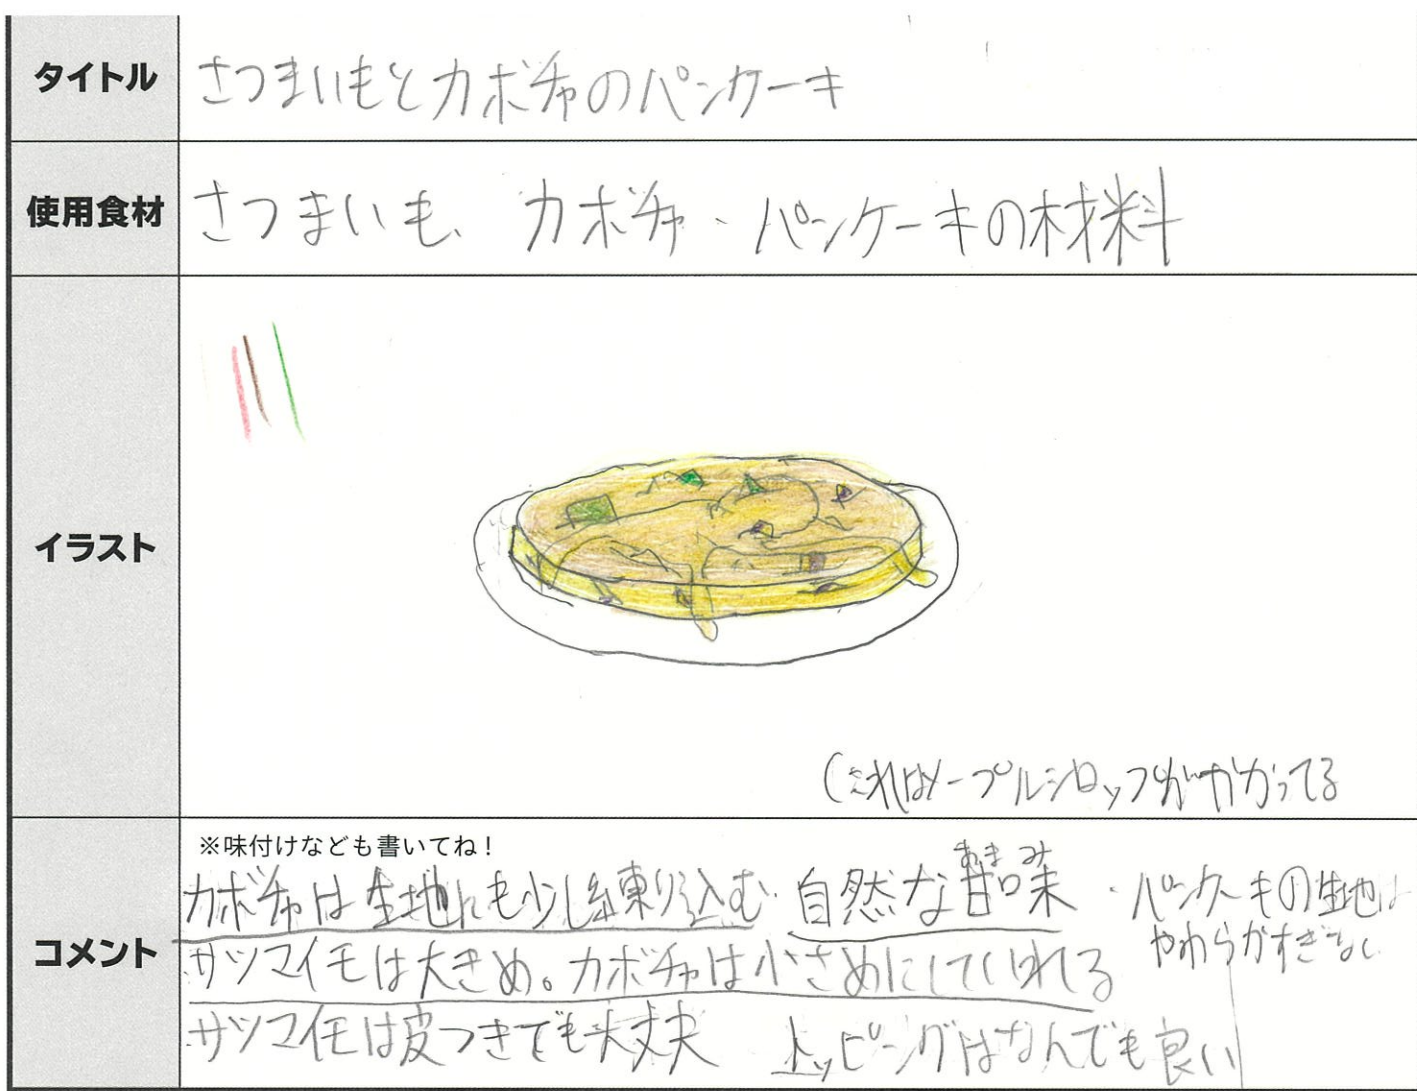 タイトル
さつまいもとカボチャのパンケーキ
使用食材
さつまいも、カボチャ・パンケーキの材料
イラスト
(これはメープルシロップがかかってる
コメント
※味付けなども書いてね!
カボチャは生地にも少し練り込む 自然な甘味
あまみ
・パンケーキの生地は
やわらかすぎない
サツマイモは大きめ。カボチャは小さめにしていれる
サツマイモは皮つきでも大丈夫 トッピングはなんでも良い